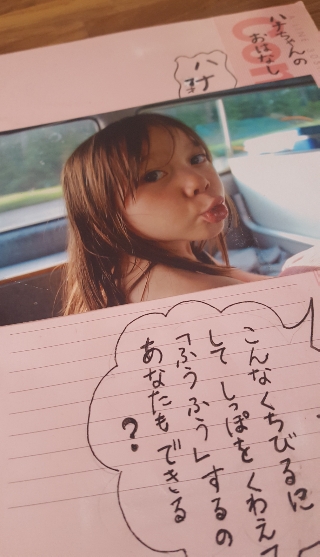 ちゃんの
おはなし
こんなくちびるに
して しっぽを くわえ
「ふうふう」するの
あなたも できる
？